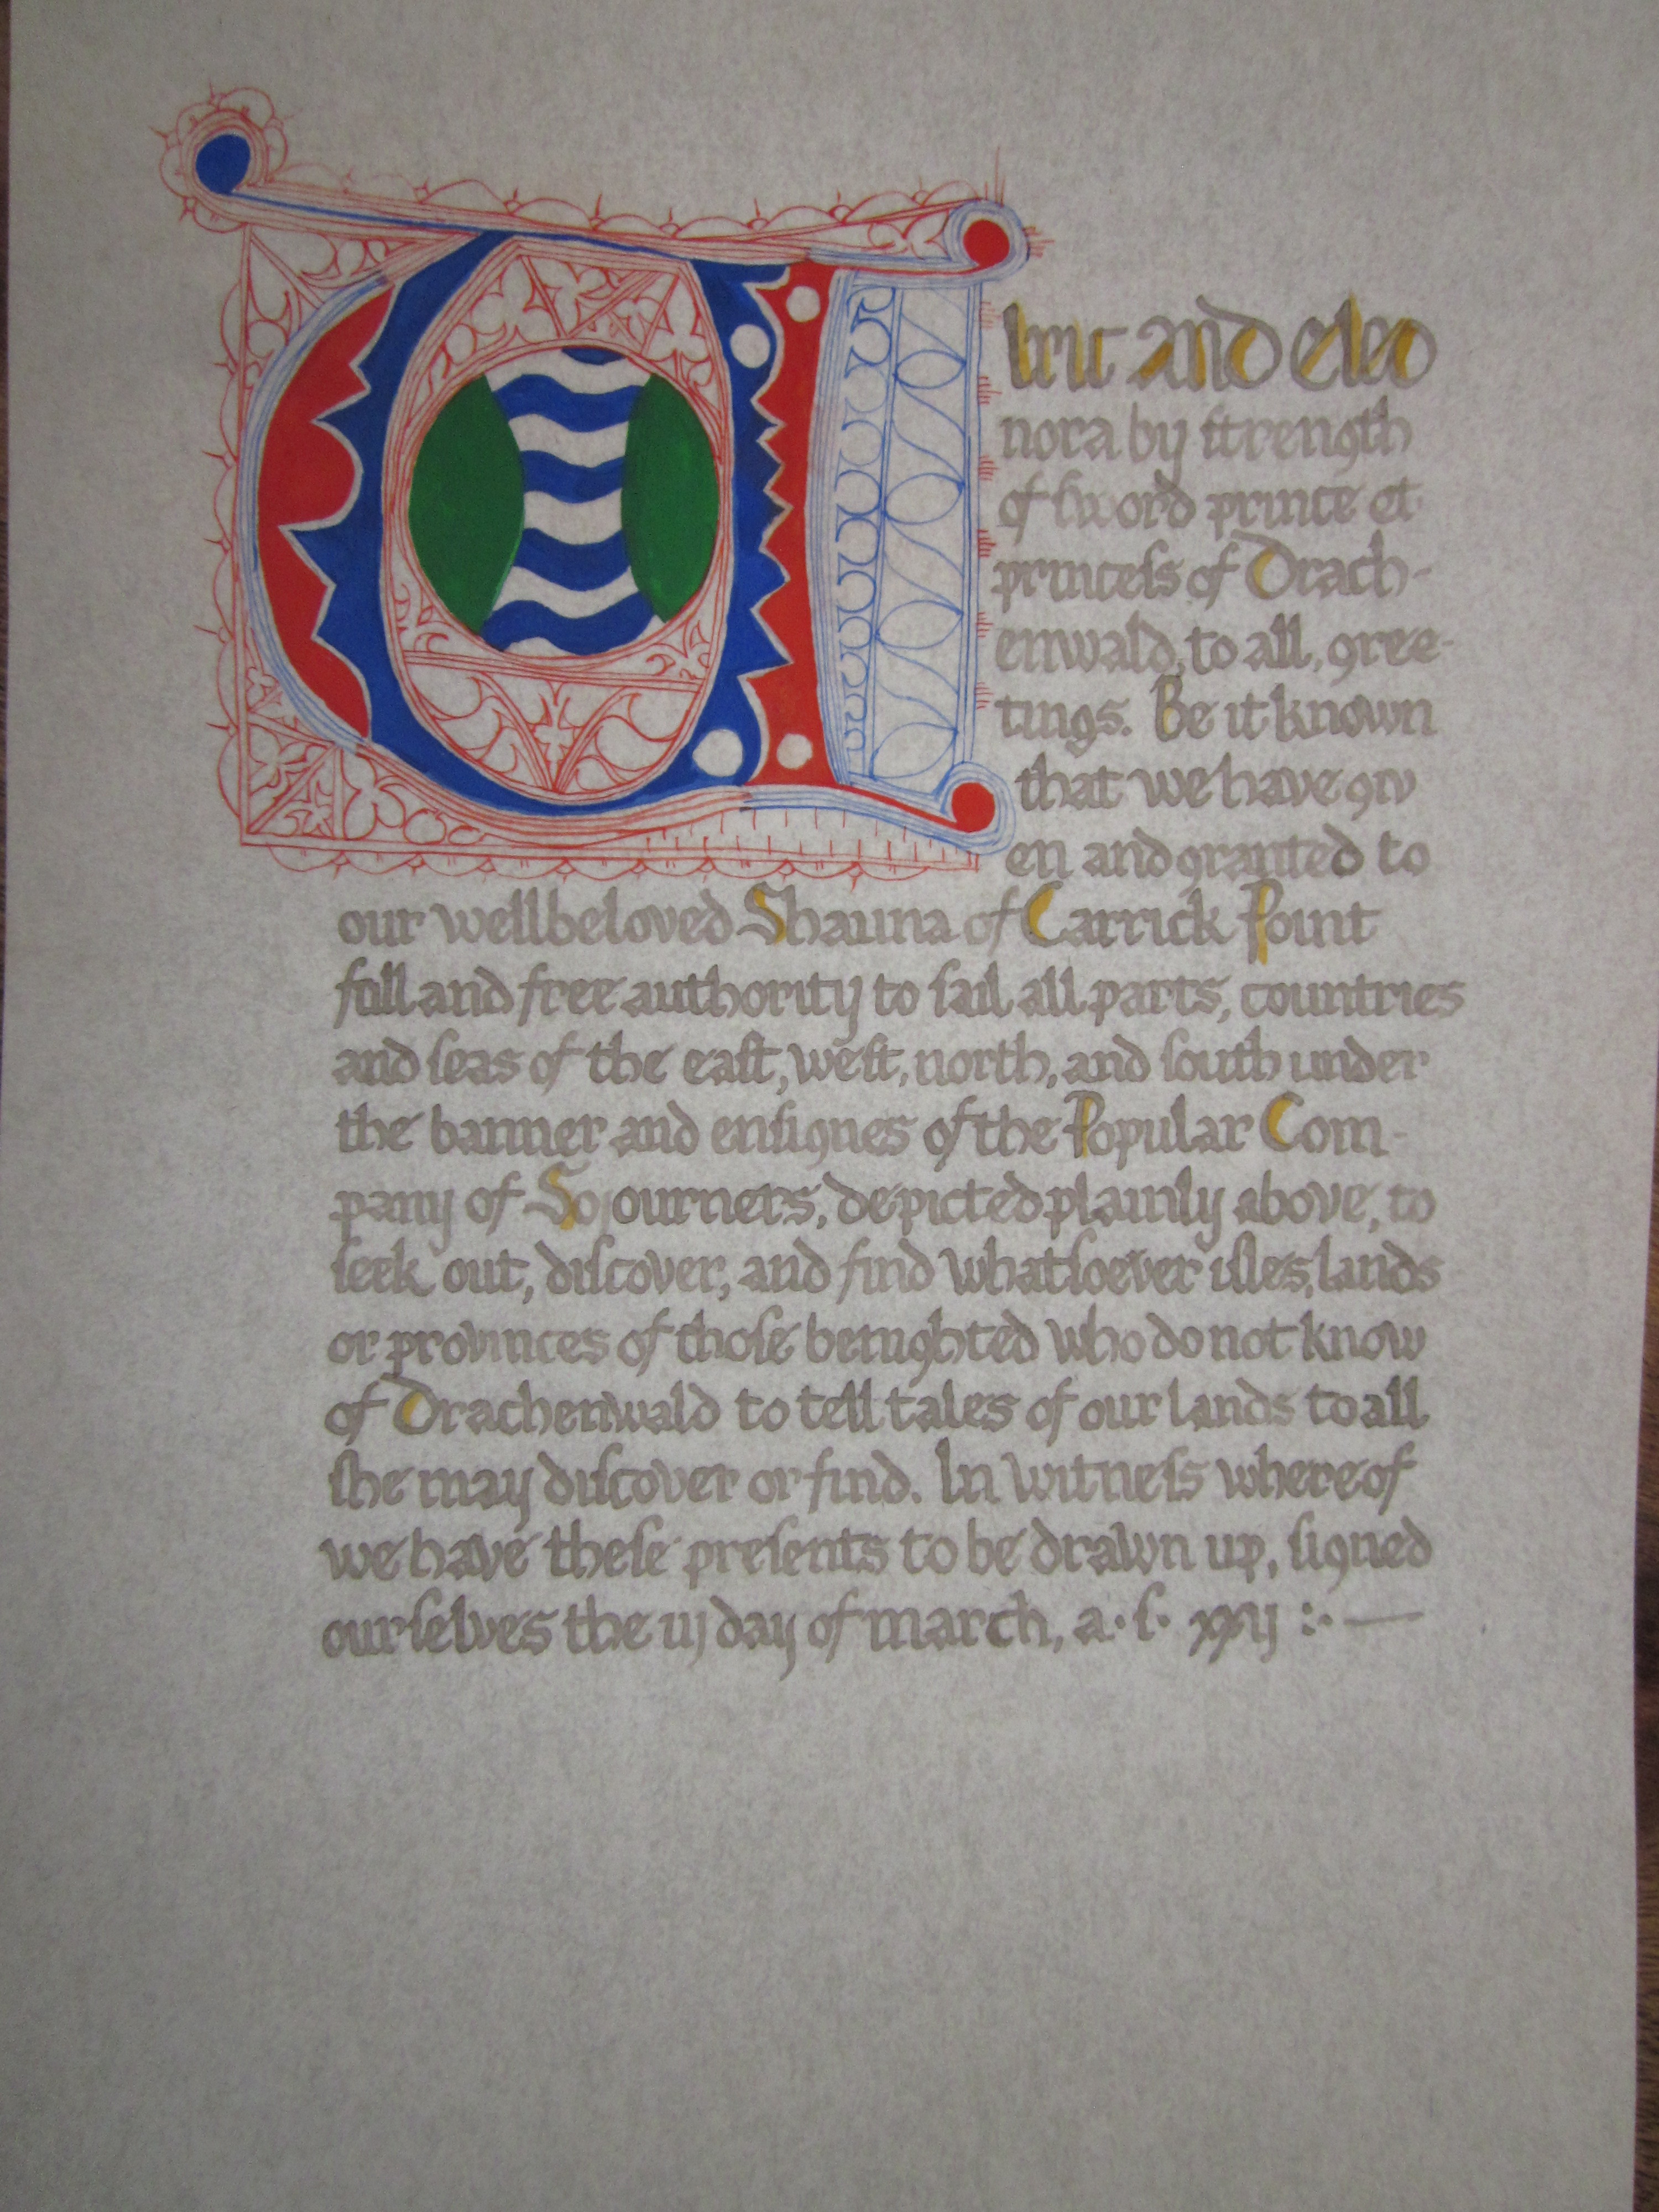 and Eleo
nora by ſtrength
of ſword prince et
princeſs of Drach-
enwald, to all, gree-
tings. Be it known
that we have giv
en and granted to
our wellbeloved Shauna of Carrick Point
full and free authority to ſail all parts, countries
and ſeas of the eaſt, weſt, north, and ſouth under
the banner and enſignes of the Popular Com-
pany of Sojourners, depicted plainly above, to
ſeek out, diſcover, and find whatſoever iſles, lands
or provinces of thoſe benighted who do not know
of Drachenwald to tell tales of our lands to all
ſhe may diſcover or find. In witneſs whereof
we have theſe preſents to be drawn up, ſigned
ourſelves the iij day of march, a·ſ·